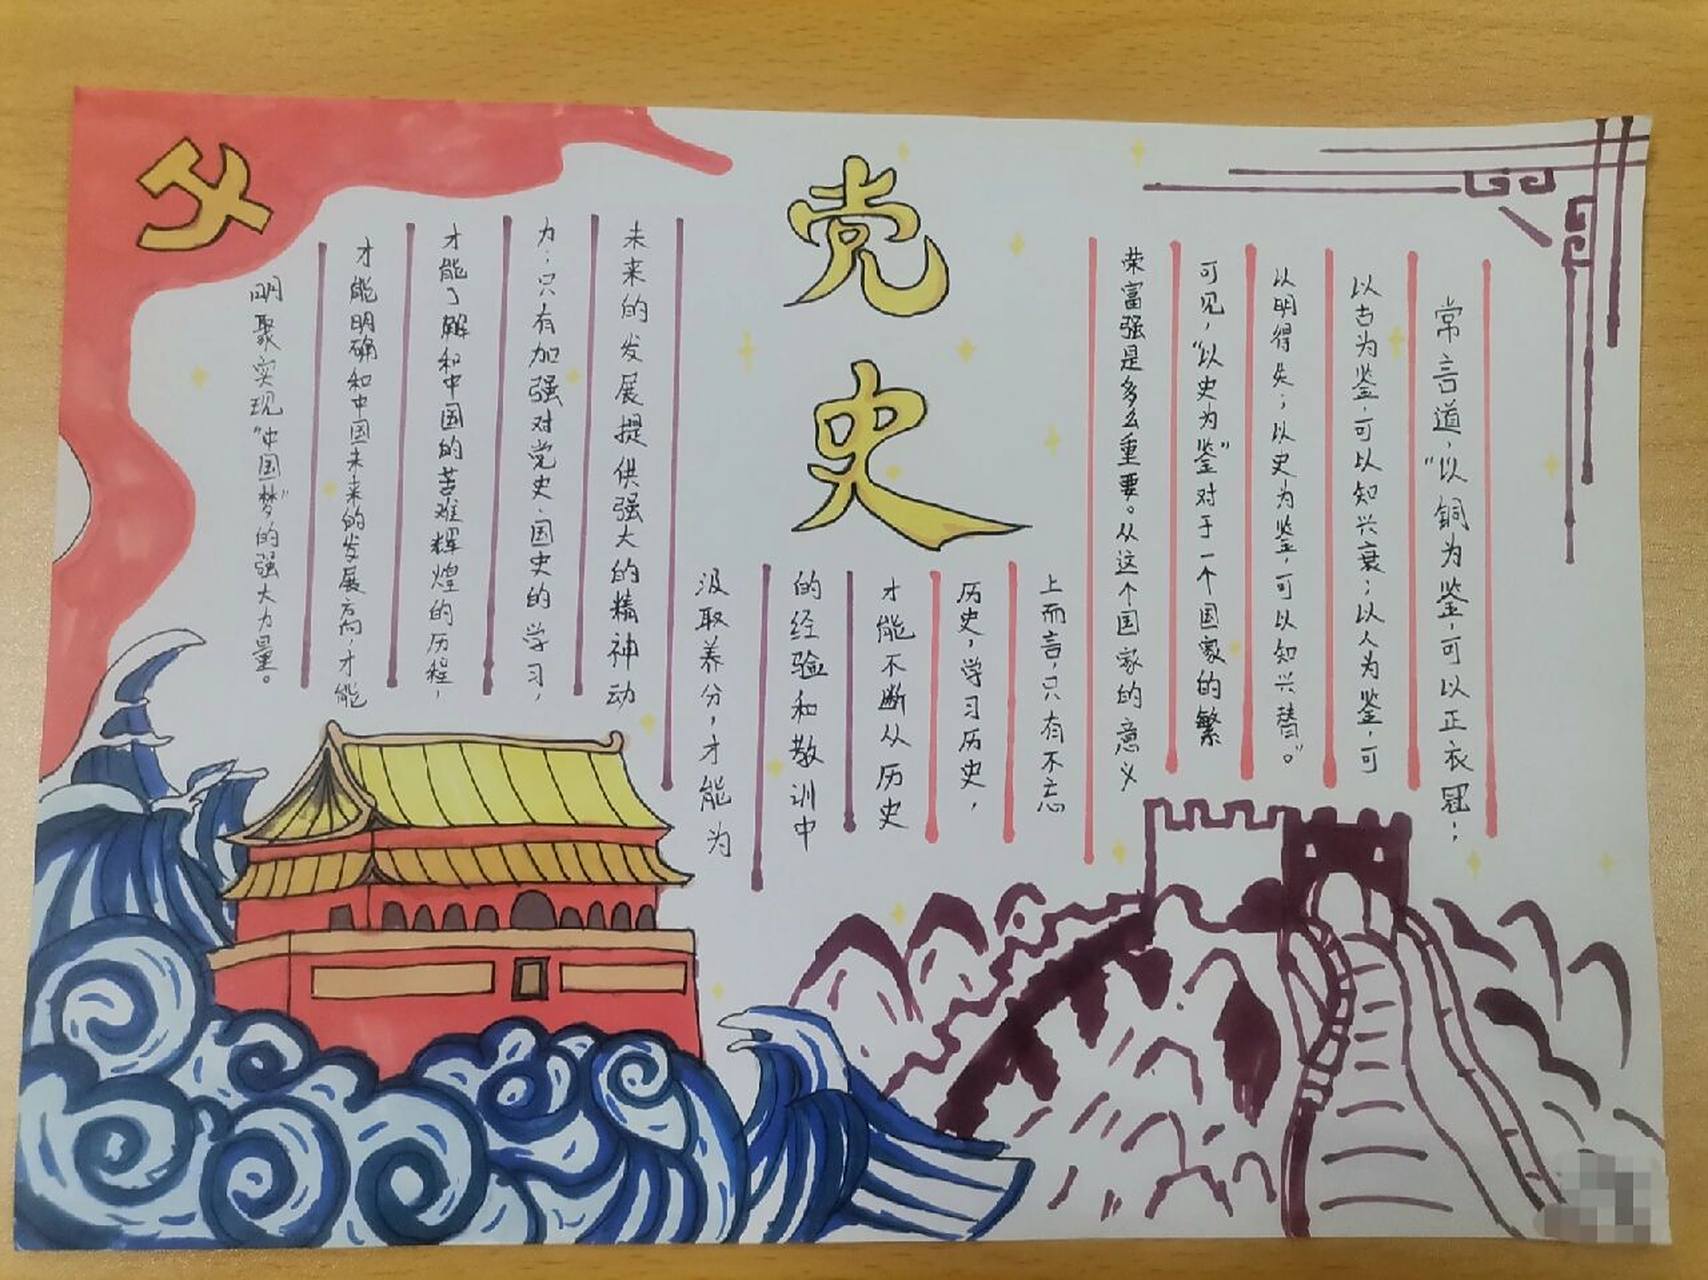 党史
常言道，“以铜为鉴，可以正衣冠；
以古为鉴，可以知兴衰；以人为鉴，可
以明得失；以史为鉴，可以知兴替。”
可见，“以史为鉴”对于一个国家的繁
荣富强是多么重要。从这个国家的意义
上而言，只有不忘
历史，学习历史，
才能不断从历史
的经验和教训中
汲取养分，才能为
未来的发展提供强大的精神动
力；只有加强对党史、国史的学习，
才能了解和中国的苦难辉煌的历程，
才能明确和中国未来的发展方向，才能
明聚实现“中国梦”的强大力量。